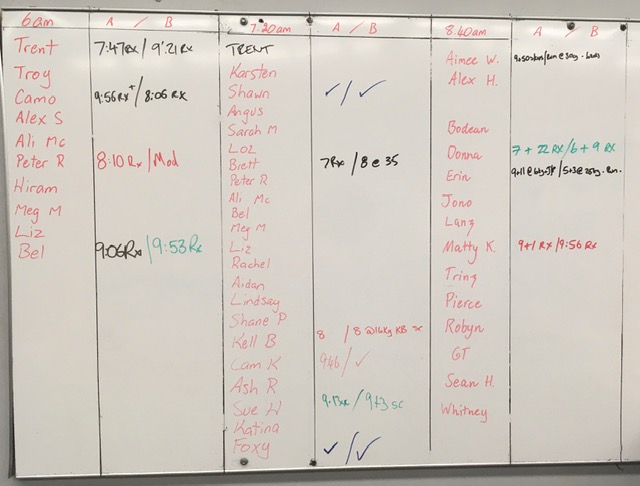 6am A / B 7:20am A / B 8:40am A / B
Trent 7:47Rx / 9'21Rx TRENT Aimee W.
Troy Karsten Alex H.
Camo 9:56Rx+ / 8:06 Rx Shawn ✓ / ✓
Alex S Angus
Sarah M Bodean
Ali Mc Loz Donna 7 + 22 Rx / 6 + 9 Rx
Peter R 8:10 Rx / Mod Brett 7Rx / 8 @ 35 Erin
Hiram Peter R
Ali Mc Jono
Meg M Bel Lang
Liz Meg M
Bel 9:06Rx / 9:53Rx Liz Matty K. 9+1 Rx / 9:56 Rx
Rachel Trinz
Aidan
Lindsay Pierce
Shane P Robyn
Kell B 8 / 8 @16Kg KB
Cam K 9:46 / ✓ GT
Ash R Sean H.
Sue H 9:13Rx / 9+3 sc Whitney
Katina
Foxy ✓ / ✓